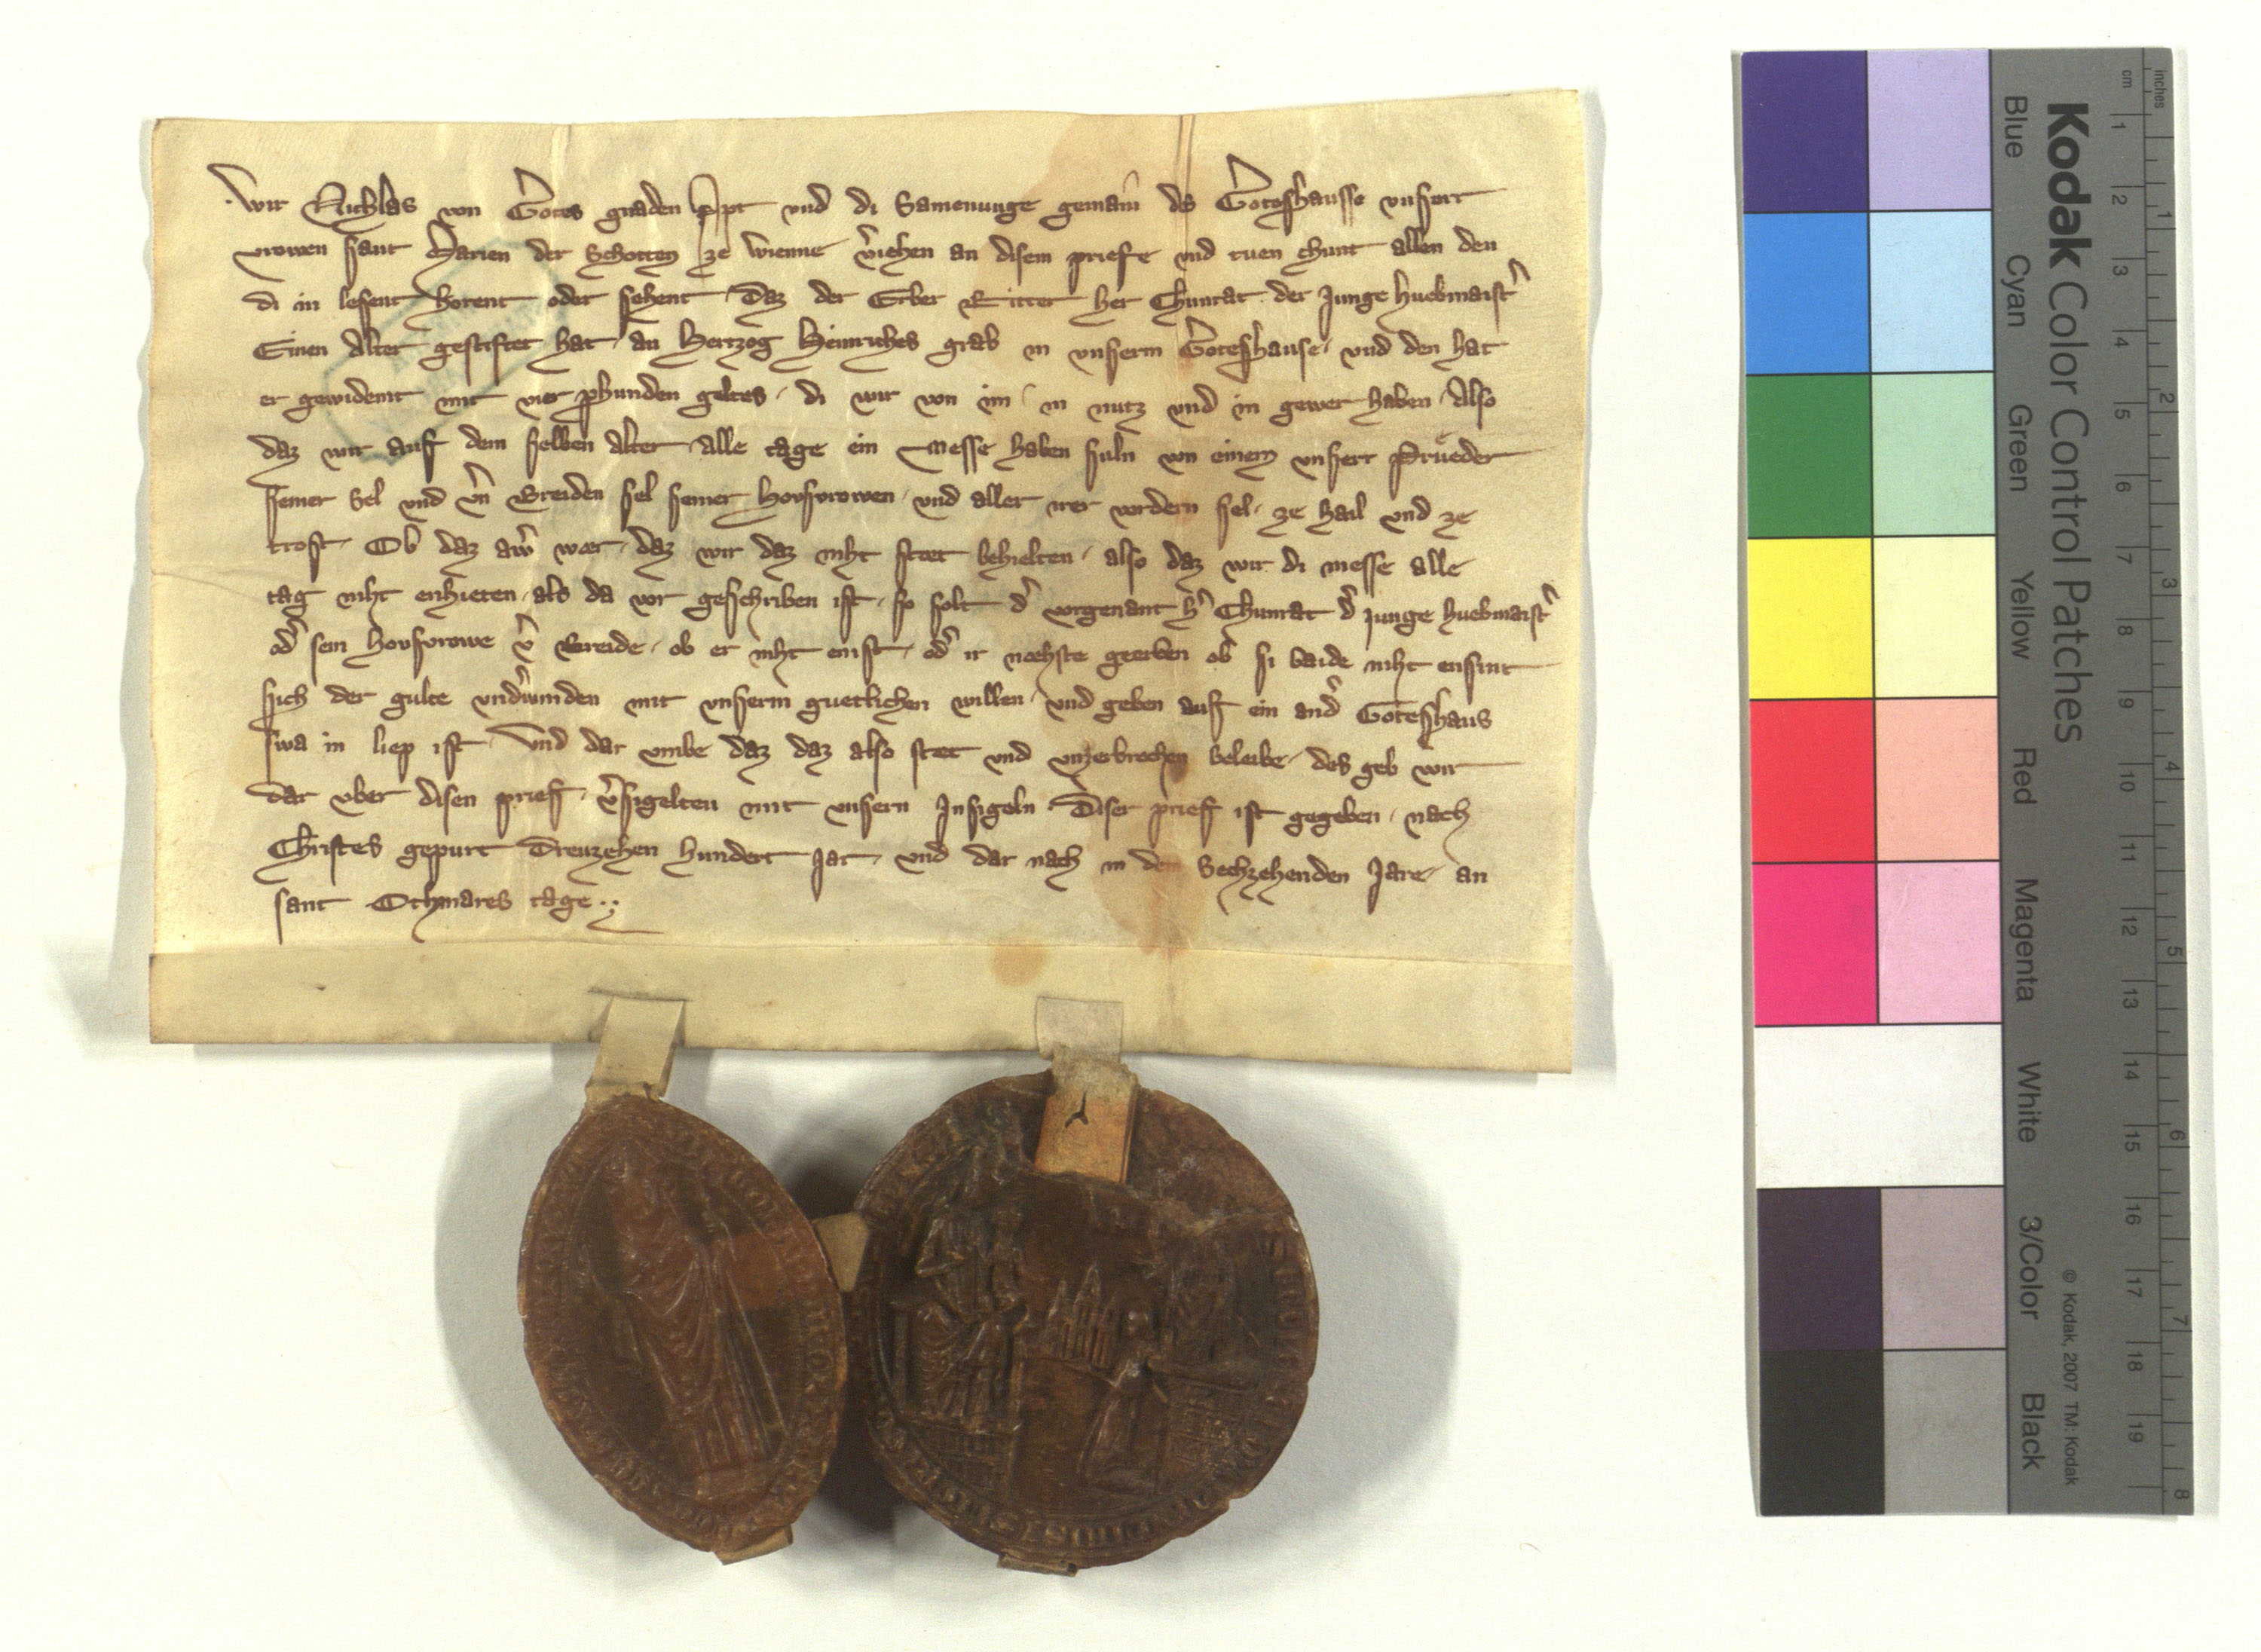 Wir Nichlas von Gotes gnaden Appt vnd di Samenunge gemain ds Goteshausse vnserr
vrowen sant Marien der Schotten ze wienne v̄iehen an disem priefe vnd tuen chunt allen den
di in lesent horent oder sehent Daz der Erber Ritter her Chunrat der Junge huebmaist̄
Einen Alter gestiftet hat an Hertzog Heinriches grab in vnserm Goteshause vnd den hat
er gewidemt mit vier phunden geltes di wir von im in nutz vnd in gewer haben Also
daz wir auf dem selben alter alle tage ein Messe haben suln von einem vnserr Pruͤeder
seiner Sel vnd v̄n Breiden sel seiner hovsvrowen vnd aller irer vordern sel ze hail vnd ze
trost Ob daz aw̄ wær daz wir daz niht stæt behielten also daz wir di messe alle
tag niht enhieten als da vor geschriben ist so solt d̄ vorgenant h̄ Chunrat d̄ junge huebmaist̄
od̄ sein hovsvrowe v̄ Breide ob er niht enist od̄ ir næhste geerben ob si baide niht ensint
sich der gulte vnd̄winden mit vnserm guetlichen willen vnd geben auf ein and̄ Goteshaus
swa in liep ist Vnd dar vmbe daz daz also stæt vnd vnzerbrochen beleibe des geb wir
dar vber disen prief v̄sigelten mit vnsern Insigeln Diser prief ist gegeben nach
Christes gepurt Dreuzehen hundert Jar vnd dar nach in dem Sechzehenden Jare an
sant Othmares tage
Kodak Color Control Patches
Blue Cyan Green Yellow Red Magenta White 3/Color Black
© Kodak, 2007 TM: Kodak
cm 1 2 3 4 5 6 7 8 9 10 11 12 13 14 15 16 17 18 19
inches 1 2 3 4 5 6 7 8